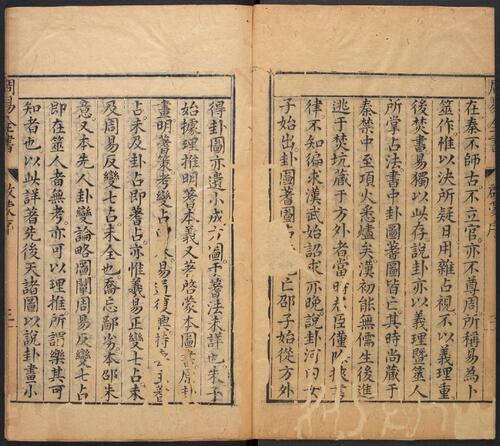 在秦不師古不立官亦不尊周所稱易為卜
筮作惟以決所疑日用雜占視不以義理重
後焚書易獨以此存說卦亦以義理暨筮人
所掌占法書中卦圖蓍圖皆亡其時尚藏于
秦禁中至項火悉燼矣漢初能無儒生後進
逃于焚坑藏于方外者當時臣僅挾書
律不知徧求漢武始詔求亦晚說卦河內女
子始出卦圖蓍圖亡邵子始從方外
得卦圖亦遺小成方圖于蓍法未詳也朱子
始據理推明蓍本義又考啓蒙本圖書原卦
畫明蓍策考變占易復無蓍
占未及卦占即蓍占亦惟義易正變七占未
及周易反變七占未全也喬忘鄙劣本邵朱
意又本先人卦變論略圖闡周易反變七占
即在筮人者無考亦可以理推所謂樂其可
知者也以此詳蓍先後天諸圖以說卦畫小
周易全書
三